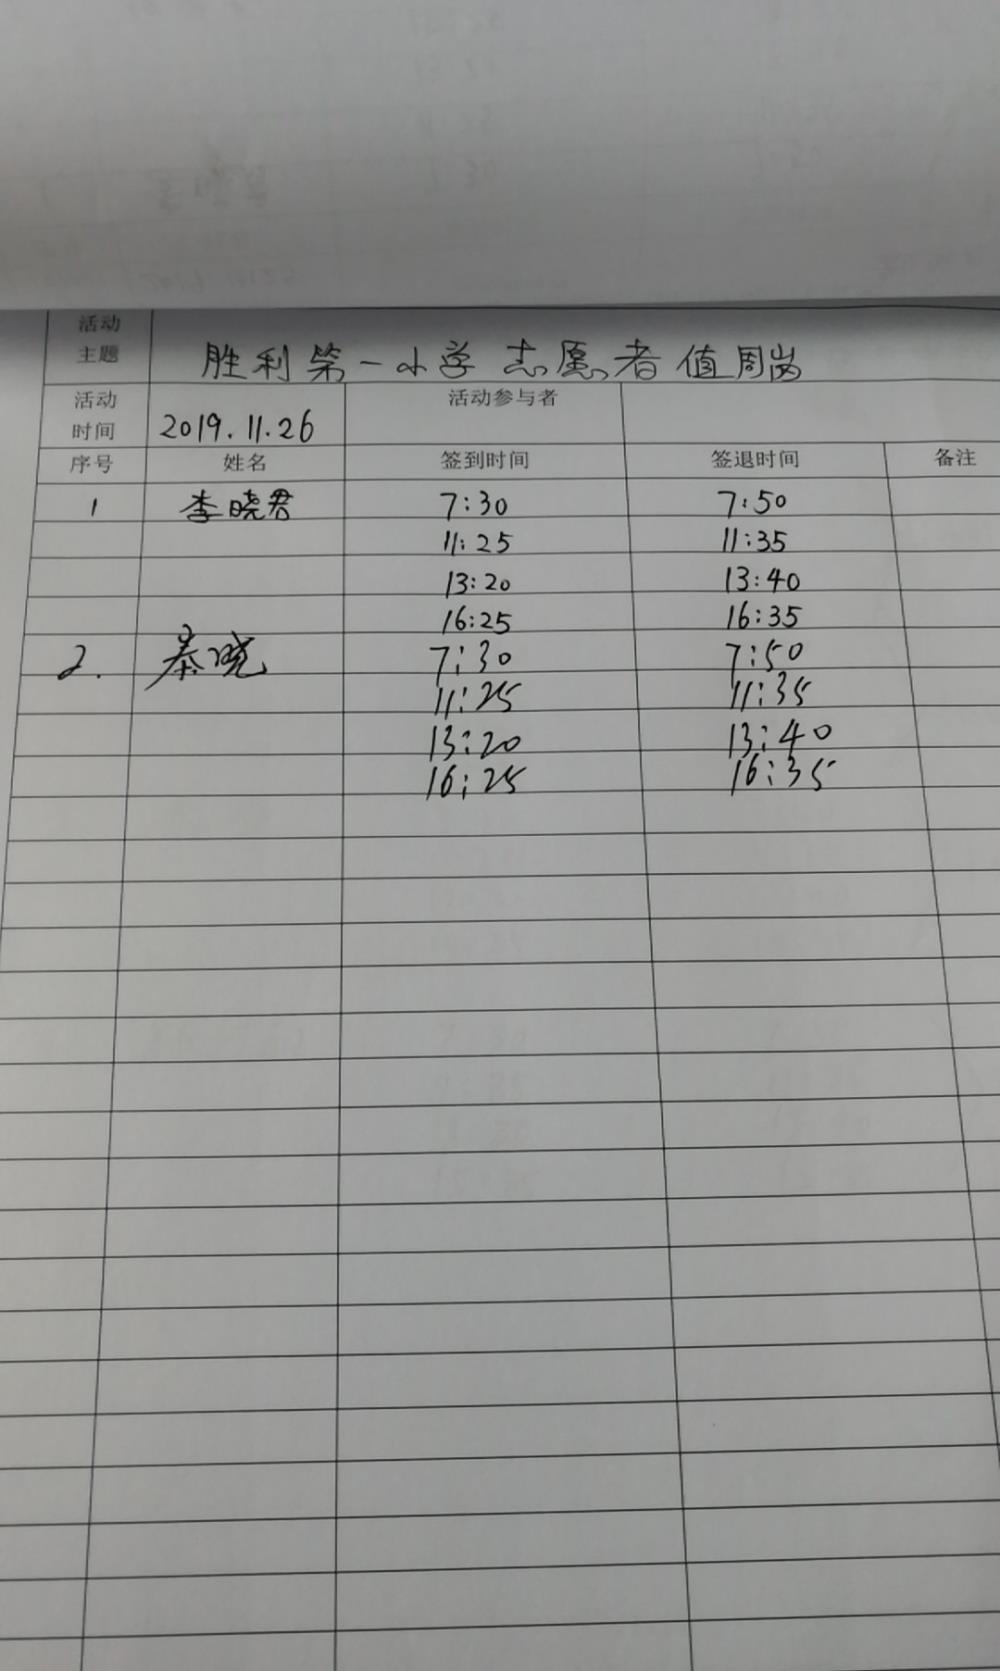 活动主题 胜利第一小学志愿者值周岗
活动时间 2019.11.26 活动参与者
序号 姓名 签到时间 签退时间 备注
1 李晓君 7:30 7:50
11:25 11:35
13:20 13:40
16:25 16:35
2. 秦晓 7:30 7:50
11:25 11:35
13:20 13:40
16:25 16:35